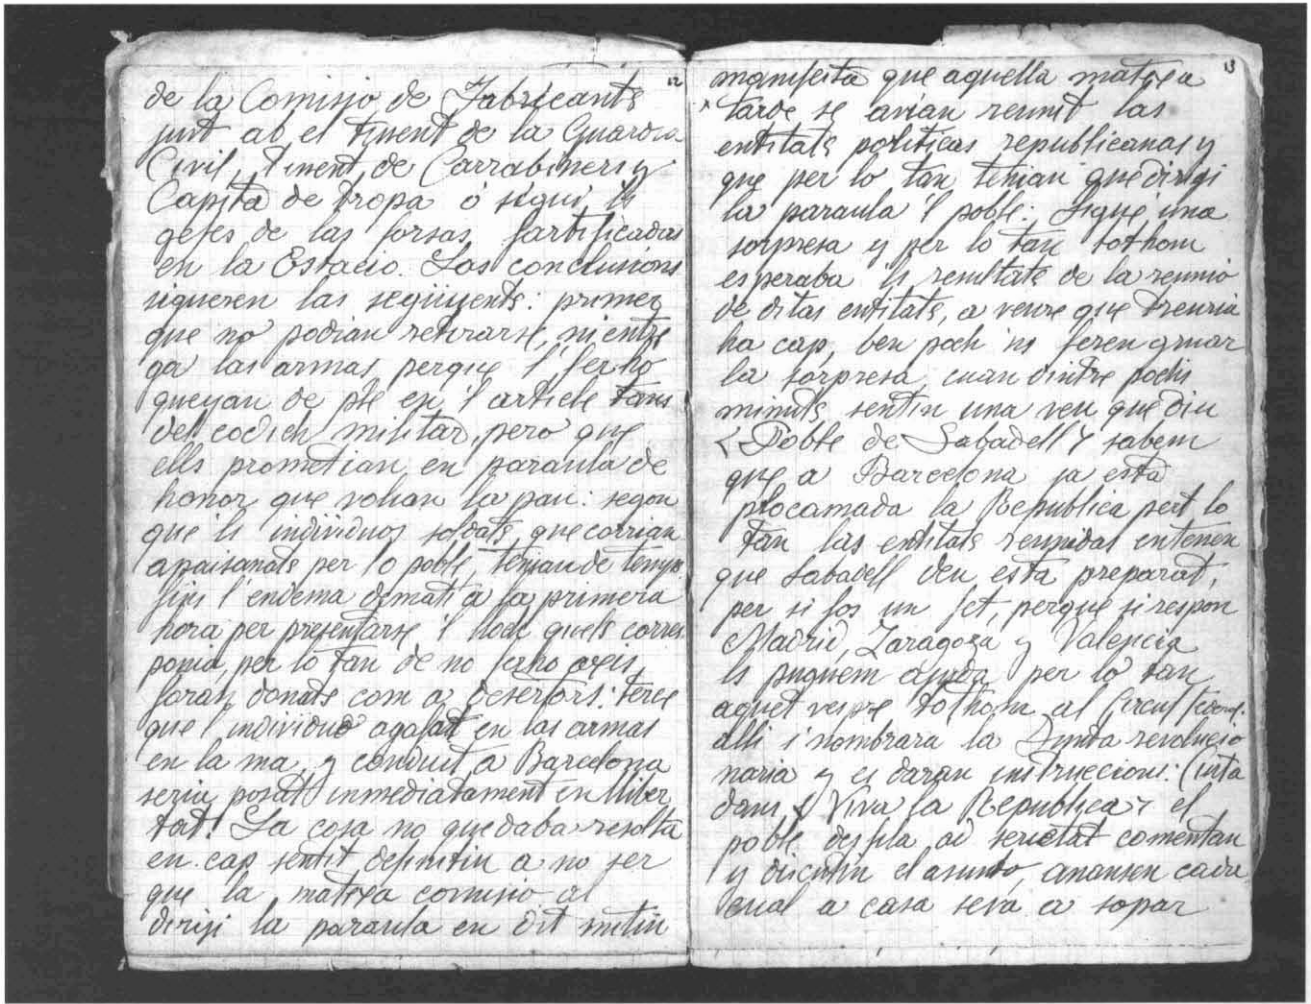 12
de la Comisio de Fabricants
junt ab el tinent de la Guardia
Civil, tinent de Carrabiners y
Capitá de tropa ó sigui, ls
gefes de las forsas fortificadas
en la Estacio. Las conclusions
sigueren las següyents: primer
que no podian retirarse, ni entre
ga las armas perque 'l ferho
queyan de ple en 'l article tans
del codich militar, pero que
ells prometian en paraula de
honor que volian la pau: segon
que ls individuos soldats que corrian
apaisanats per lo poble, tenian de temps
fins l' endema demati a la primera
hora per presentarse 'l lloch quels corres
ponia, per lo tan de no ferho axis,
foran donats com a desertors: terce
que l' individuo agafat en las armas
en la ma, y conduit a Barcelona
seria posat inmediatament en lliber
tat. La cosa no quedaba resolta
en cap sentit definitiu a no ser
que la matexa comisio al
dirigi la paraula en dit mitin
13
manifesta que aquella matexa
tarde se avian reunit las
entitats politicas republicanas y
que per lo tan tenian que dirigi
la paraula 'l poble: Sigué una
sorpresa y per lo tan tothom
esperaba ls resultats de la reunio
de ditas entitats, a veure que treuria
ha cap, ben poch ns feren gruar
la sorpresa, cuan dintre pochs
minuts, sentin una veu que diu
Poble de Sabadell sabem
que a Barcelona ja está
plocamada la Republica pert lo
tan las entitats reunidas entenen
que Sabadell deu está preparat,
per si fos un fet, perque si respon
Madrid, Zaragoza y Valencia
ls puguem ajuda per lo tan
aquet vespre tothom al Circul federal.
alli s' nombrara la Junta revolucio
naria y es daran instruccions: Ciuta
dans, Viva la Republica; el
poble desfila ab serietat comentan
y discutin el asunto, anansen cada
cual a casa seva a sopar